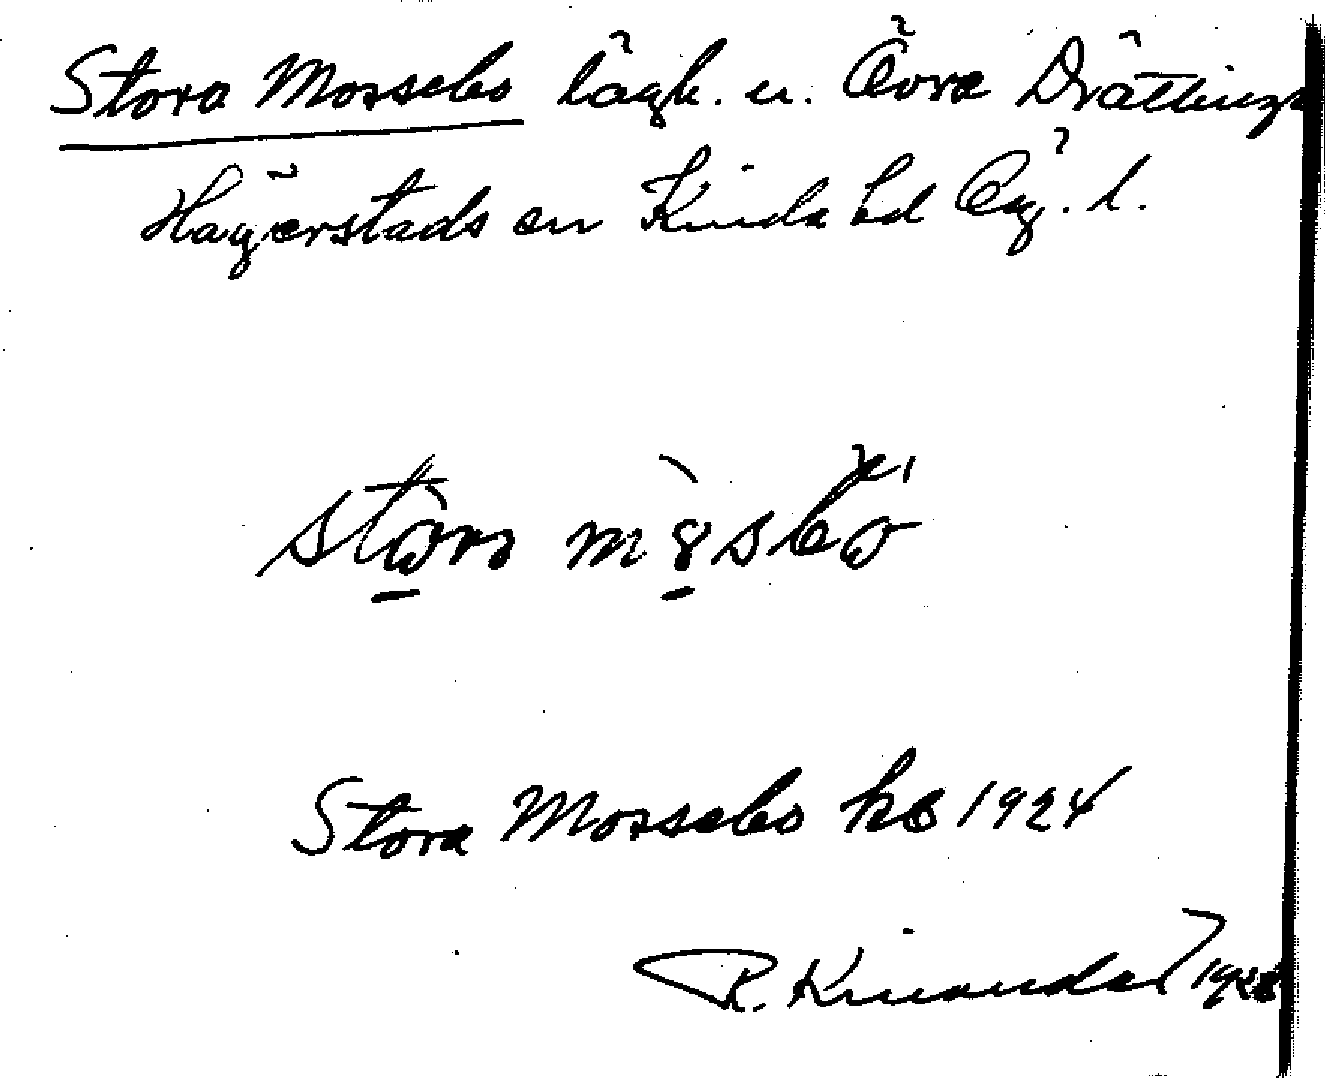 Stora Mossebo lägh. u. Övra Drättinge
Hägerstads sn Kinda hd Ög. l.
Stora Mossebo kb 1924
R. Kinander